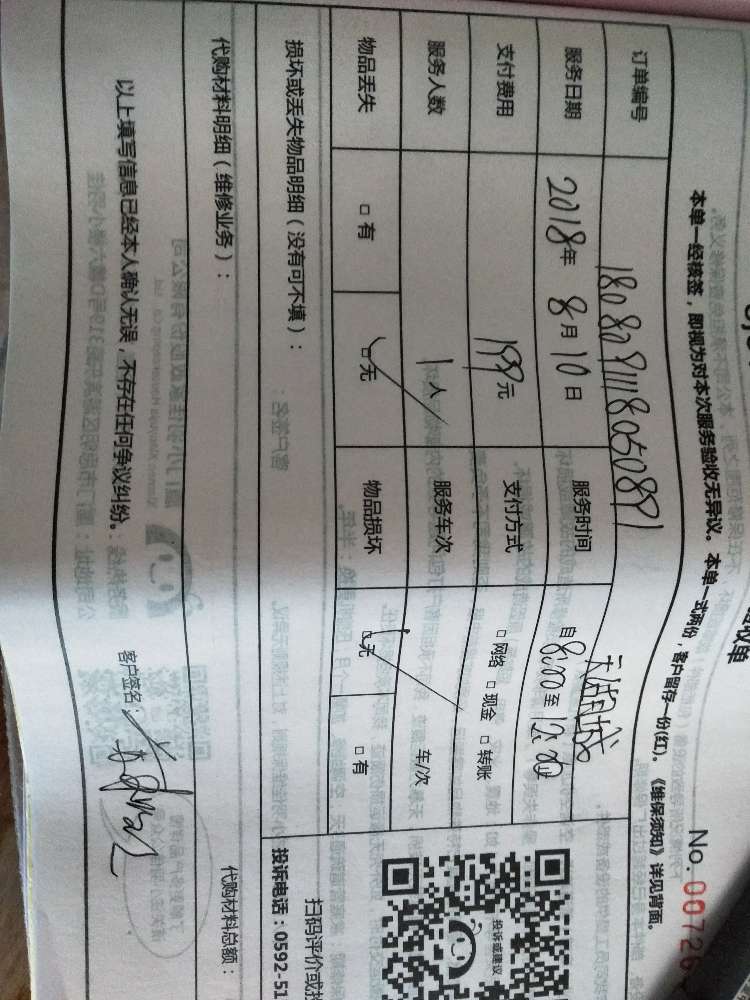 收单
No.00726
本单一经核签，即视为对本次服务验收无异议。本单一式两份，客户留存一份(红)。《维保须知》详见背面。
订单编号 180809111805089
服务日期 2018年8月10日 服务时间 自8:00至12:00
支付费用 199元 支付方式 □网络 □现金 □转账
服务人数 1人 服务车次 车/次
物品丢失 □有 □无 物品损坏 □无 □有
损坏或丢失物品明细（没有可不填）：
代购材料明细（维修业务）： 代购材料总额：
投诉或建议
扫码评价或投
投诉电话：0592-51
以上填写信息已经本人确认无误，不存在任何争议纠纷。
客户签名：